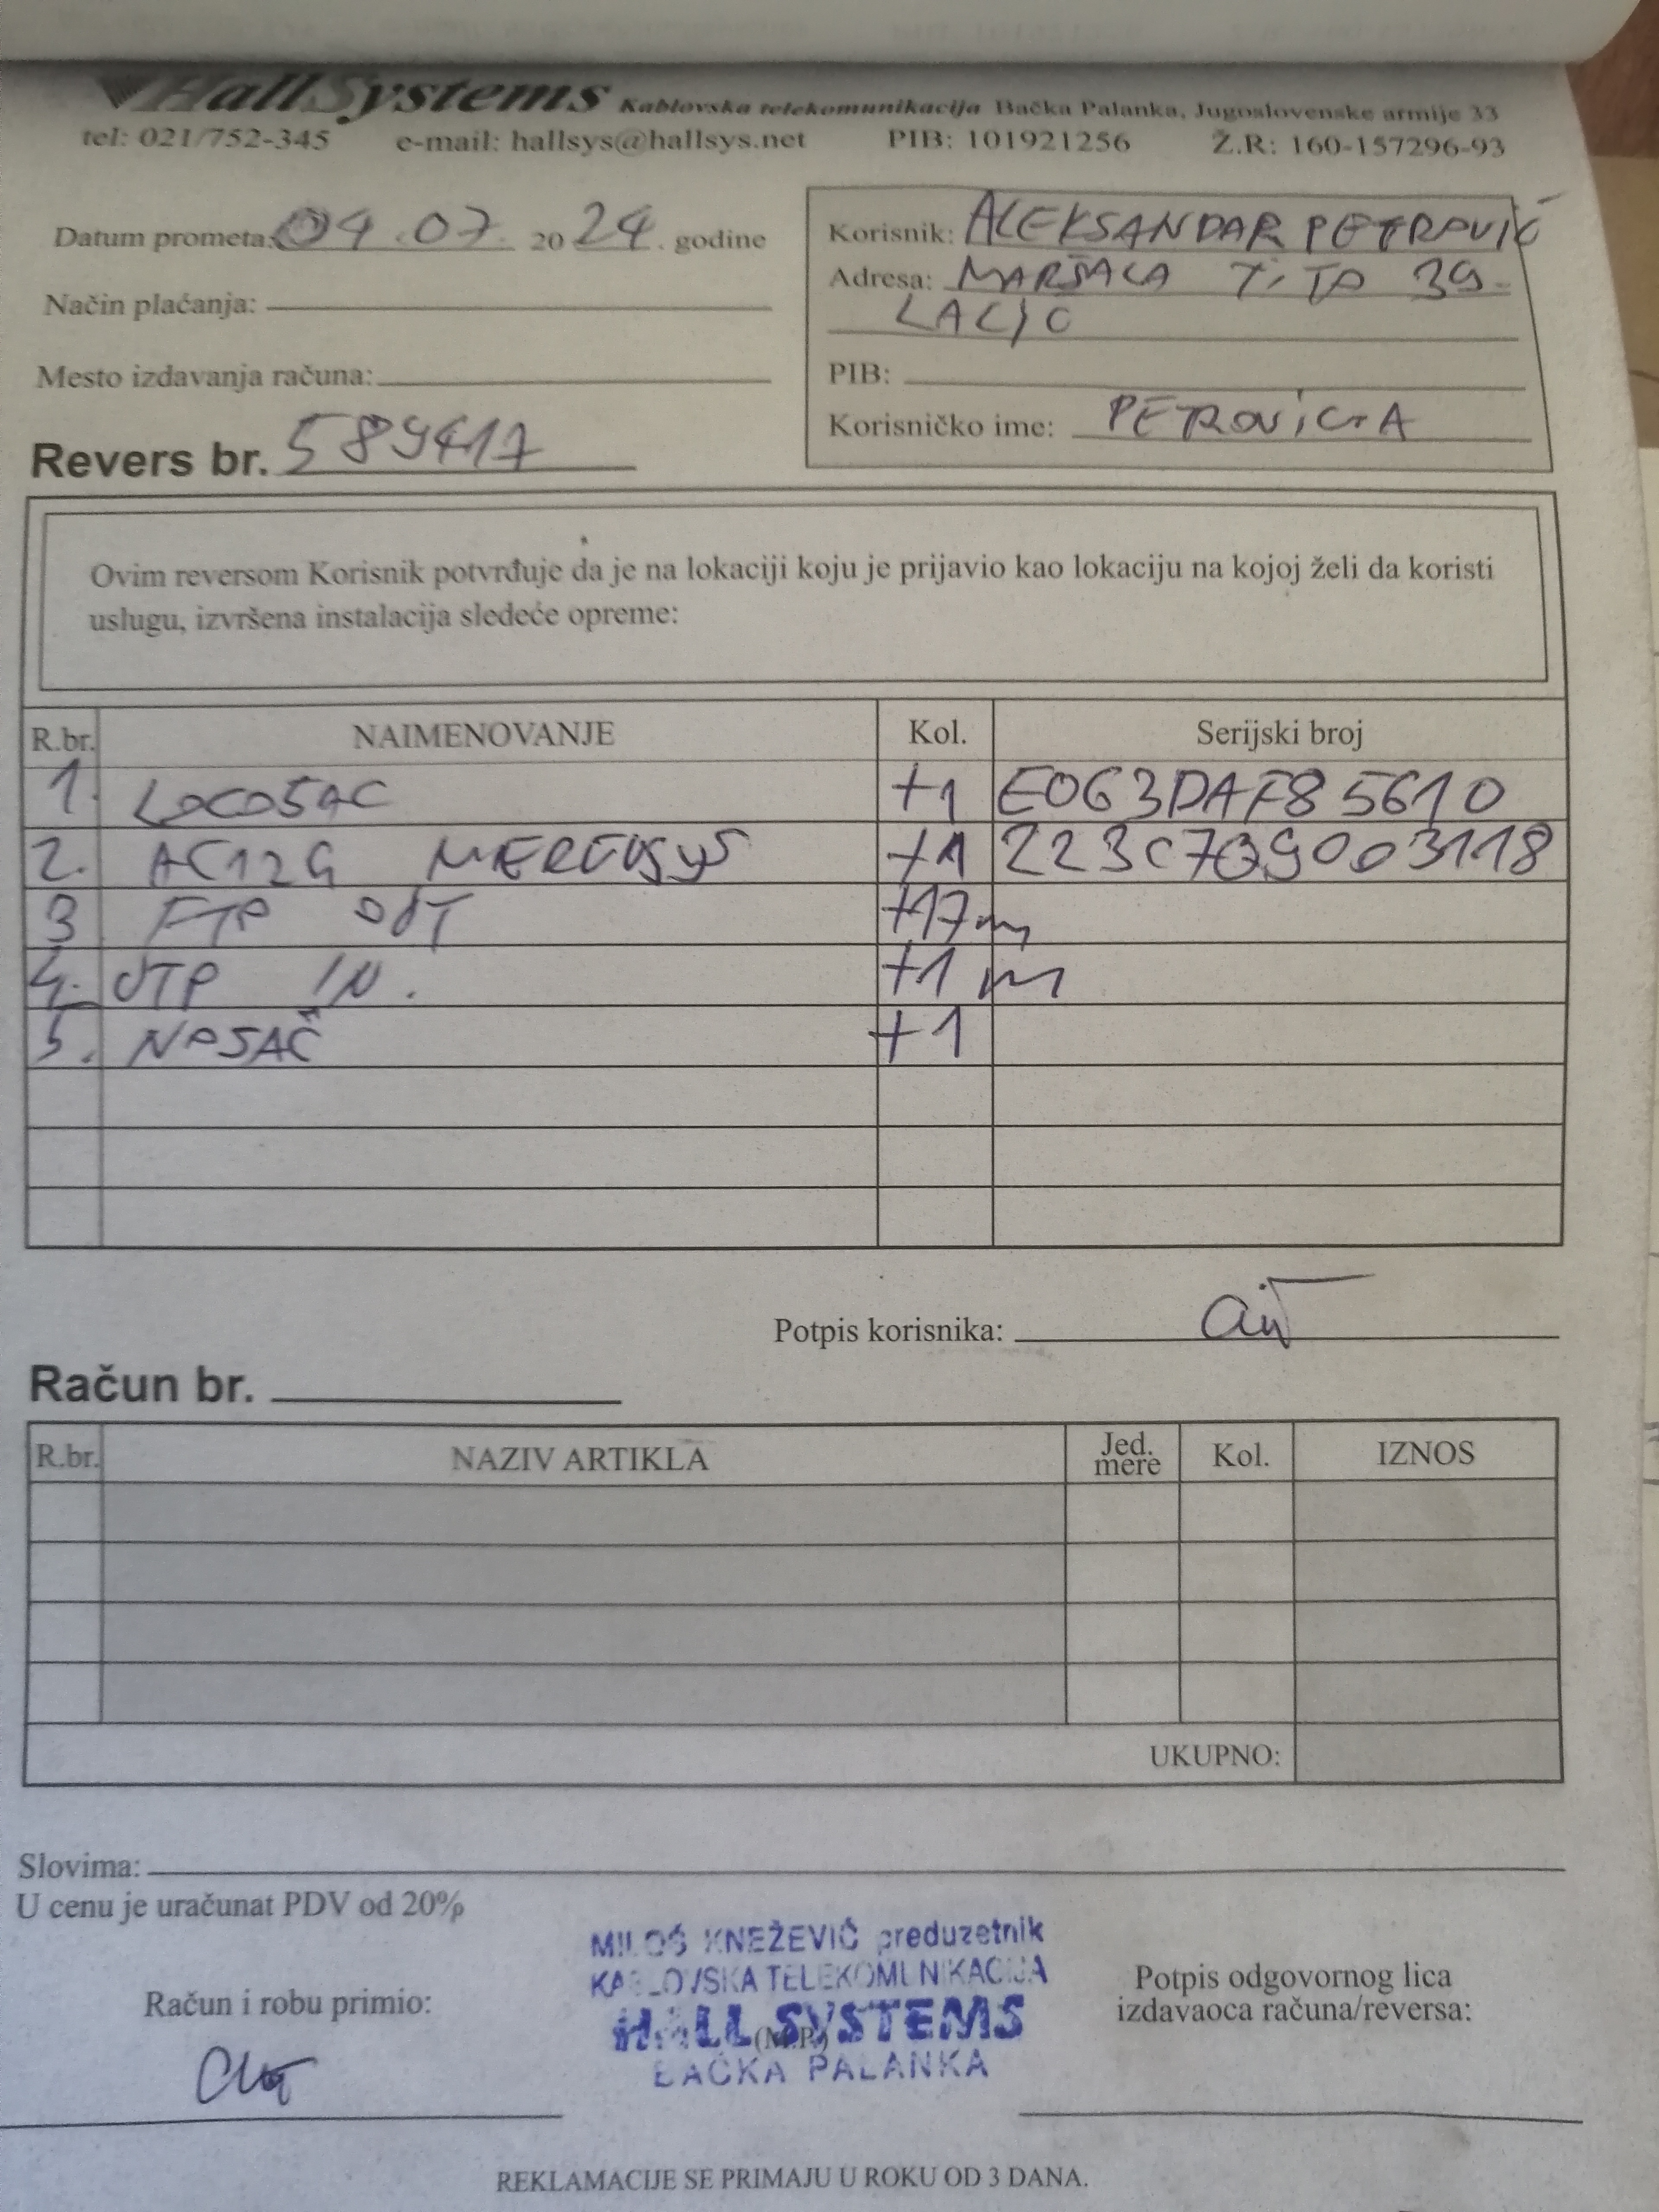 HallSystems Kablovska telekomunikacija Bačka Palanka, Jugoslovenske armije 33
tel: 021/752-345 e-mail: hallsys@hallsys.net PIB: 101921256 Ž.R: 160-157296-93
Datum prometa: 04.07. 2024. godine
Korisnik: ALEKSANDAR PETROVIĆ
Adresa: MARŠALA TITO 39
Način plaćanja:
LALIĆ
Mesto izdavanja računa:
PIB:
Korisničko ime: PETROVICTA
Revers br. 589417
Ovim reversom Korisnik potvrđuje da je na lokaciji koju je prijavio kao lokaciju na kojoj želi da koristi
uslugu, izvršena instalacija sledeće opreme:
R.br. NAIMENOVANJE Kol. Serijski broj
1. LOCO5AC +1 E063DAF85610
2. AC12G MERCUSYS +1 223C7Q9003118
3 FTP OUT +17m
4. UTP IN. +1 m
5. NOSAČ +1
Potpis korisnika:
Račun br.
R.br. NAZIV ARTIKLA Jed. mere Kol. IZNOS
UKUPNO:
Slovima:
U cenu je uračunat PDV od 20%
MILOŠ KNEŽEVIĆ preduzetnik
KABLOVSKA TELEKOMUNIKACIJA
HALL SYSTEMS
(M.P.)
BAČKA PALANKA
Račun i robu primio:
Potpis odgovornog lica
izdavaoca računa/reversa:
REKLAMACIJE SE PRIMAJU U ROKU OD 3 DANA.